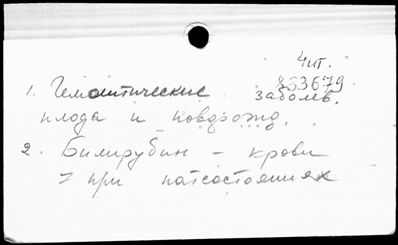 Чит.
833679
1. Гемолитические заболев.
плода и новорожд.
2. Билирубин – крови
при патсостояниях